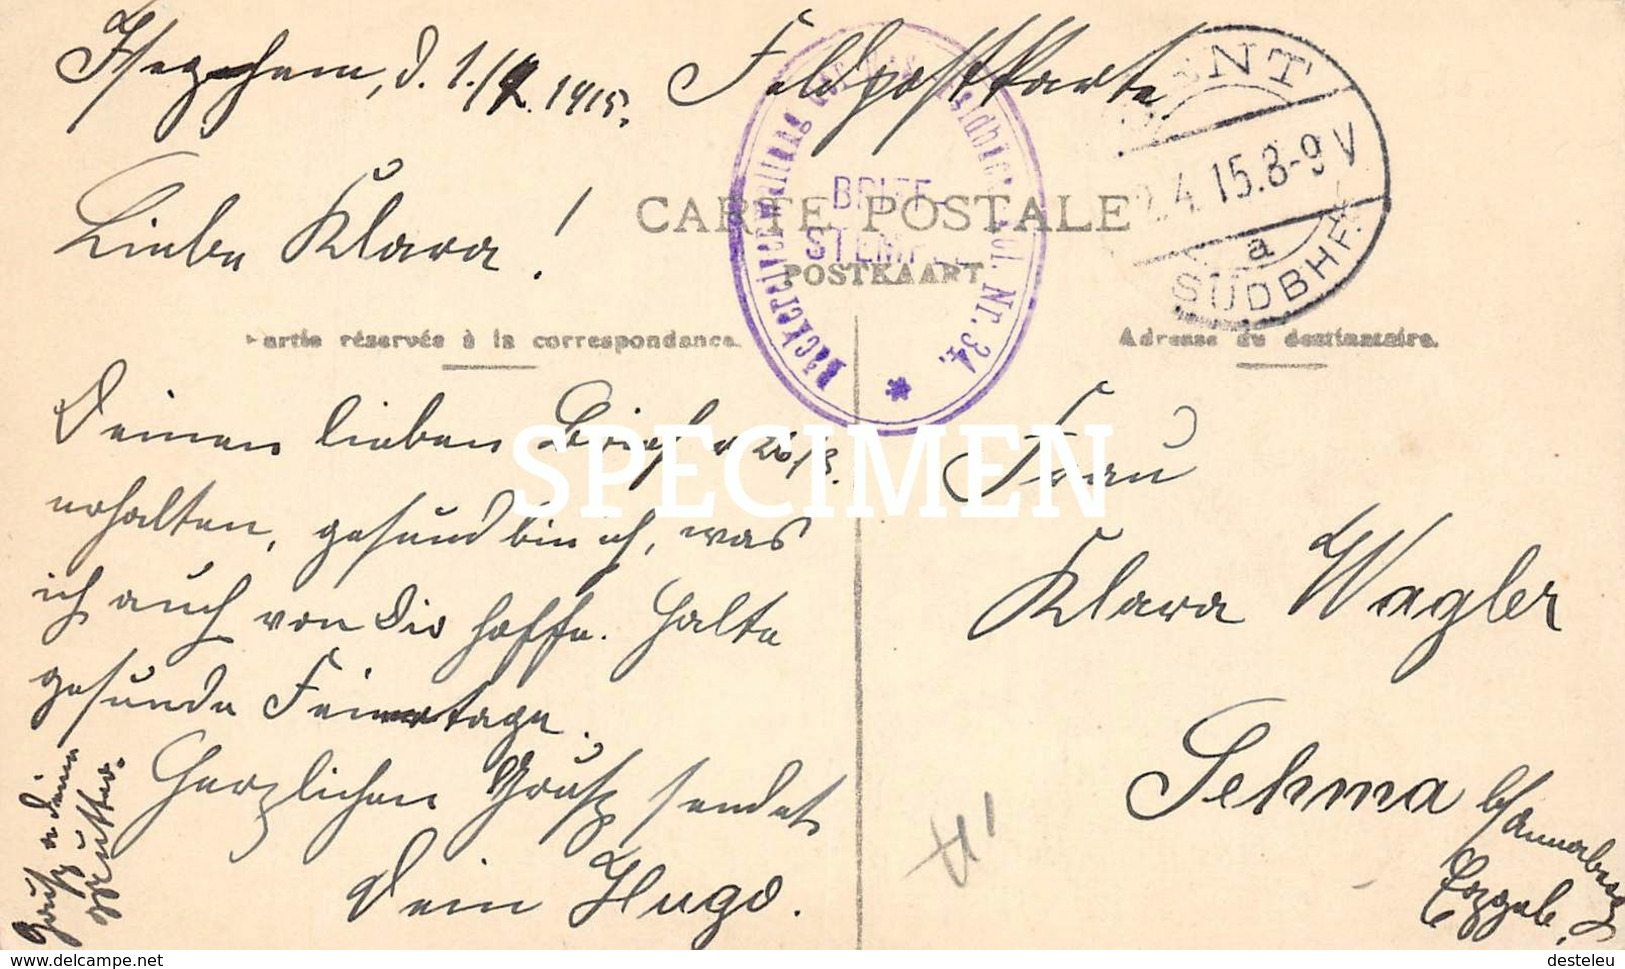 Iseghem, d. 1./4. 1915. Feldpostkarte
Liebe Klara!
CARTE POSTALE
POSTKAART
Partie réservée à la correspondance.
Adresse du destinataire.
Deinen lieben Brief v 26/3.
erhalten, gesund bin ich, was
ich auch von Dir hoffe. Halte
gesunde Feiertage.
Herzlichen Gruß sendet
Dein Hugo.
Gruß a deine
Mutter.
Frau
Klara Wagler
Sehma b/Annaberg
Erzgeb.
GENT
2.4.15.8-9V
a
SÜDBHF.
BRIEF-
STEMPEL
Nr. 34.
SPECIMEN
https://www.delcampe.net
desteleu